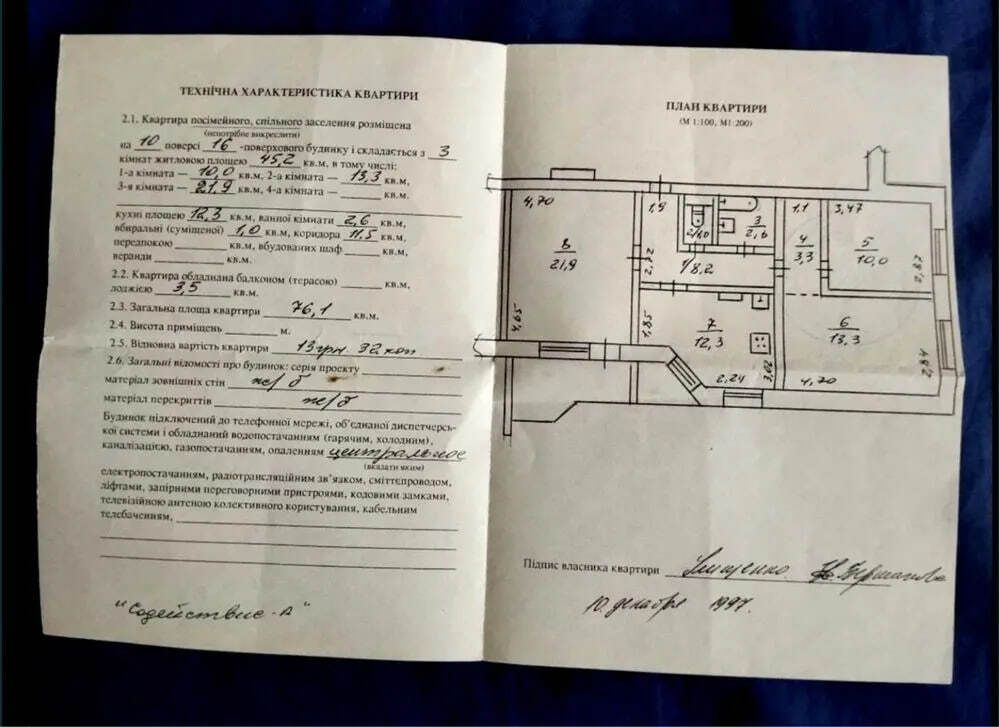 ТЕХНІЧНА ХАРАКТЕРИСТИКА КВАРТИРИ
2.1. Квартира посімейного, спільного заселення розміщена
(непотрібне викреслити)
на 10 поверсі 16 -поверхового будинку і складається з 3
кімнат житловою площею 45,2 кв.м, в тому числі:
1-а кімната — 10,0 кв.м, 2-а кімната — 13,3 кв.м,
3-я кімната — 21,9 кв.м, 4-а кімната — кв.м,
кухні площею 12,3 кв.м, ванної кімнати 2,6 кв.м,
вбиральні (суміщеної) 1,0 кв.м, коридора 11,5 кв.м,
передпокою кв.м, вбудованих шаф кв.м,
веранди кв.м.
2.2. Квартира обладнана балконом (терасою) кв.м,
лоджією 3,5 кв.м.
2.3. Загальна площа квартири 76,1 кв.м.
2.4. Висота приміщень м.
2.5. Відновна вартість квартири 13 грн 32 коп
2.6. Загальні відомості про будинок: серія проекту
матеріал зовнішніх стін ж/б
матеріал перекриттів ж/б
Будинок підключений до телефонної мережі, об'єднаної диспетчерсь-
кої системи і обладнаний водопостачанням (гарячим, холодним),
каналізацією, газопостачанням, опаленням центральное
(вказати яким)
електропостачанням, радіотрансляційним зв'язком, сміттєпроводом,
ліфтами, запірними переговорними пристроями, кодовими замками,
телевізійною антеною колективного користування, кабельним
телебаченням,
"Содействие-А"
ПЛАН КВАРТИРИ
(М 1:100, М1:200)
4,70
1,9
1,1
3,47
8
21,9
2/1,0
3
2,6
4
3,3
5
10,0
2,87
1/8,2
4,65
1,85
7
12,3
6
13,3
3,02
2,84
2,24
4,70
Підпис власника квартири
10 декабря 1997.